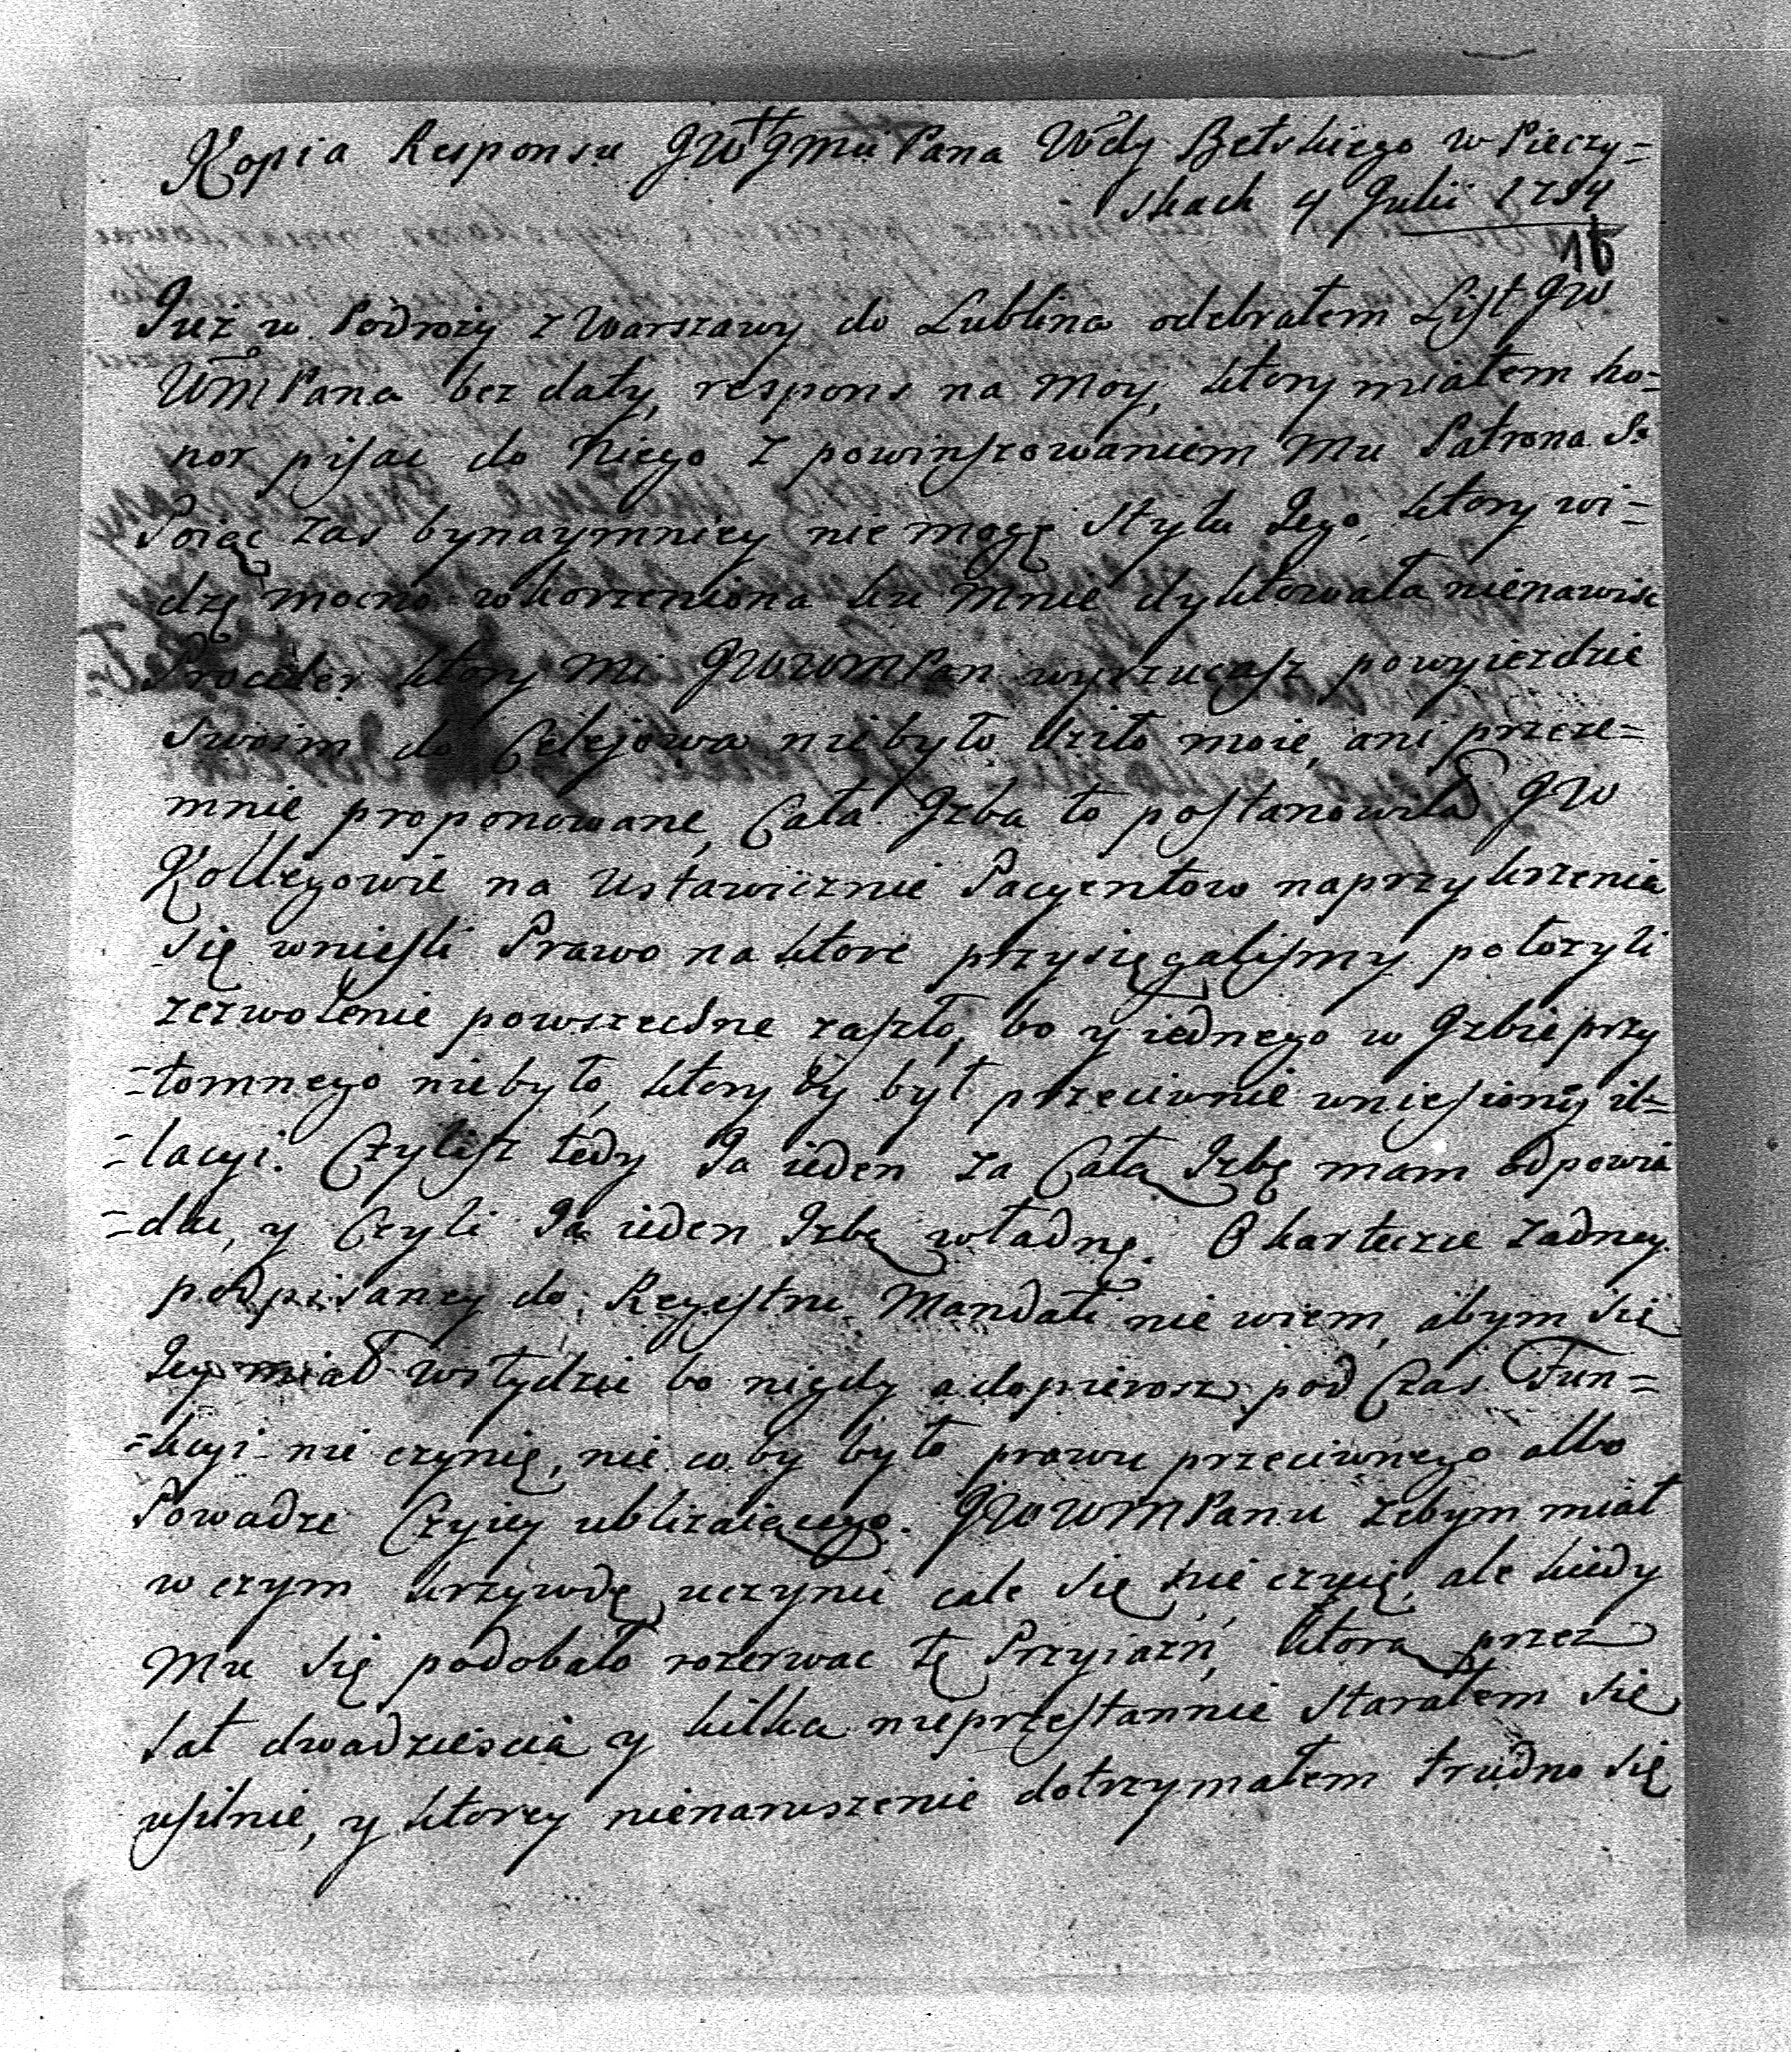 Kopia Responsu JW Jmci Pana Wdy Bełskiego w Pieczy=
skach 4 Julii 1754
16
Już w Podroży z Warszawy do Lublina odebrałem List JW
WM Pana bez daty, respons na moy, ktory miałem ho=
nor pisac do Niego z powinszowaniem Mu Patrona
Poiąc zas bynaymniey nie mogę stylu Jego, ktory wi=
dzę mocno wkorzeniona ku mnie dyktowała nienawisc
Proceder ktory mi JWWM Pan wyrzucasz powyiezdzie
Swoim do Celejowa niebyło dziło moie, ani przeze=
mnie proponowane, Cała Jzba to postanowiła JW
Kollegowie na ustawicznie Pacyentow naprzykrzenia
się wniesli Prawo na ktore przysięgalismy połozyli
zezwolenie powszechne zaszło, bo y iednego w Jzbie przy
=tomnego niebyło, ktory by był przeciwnie wniesioney il=
=lacyi. Czylisz tedy Ja ieden za Całą Jzbę mam odpowia
=dac, y Czyli Ja ieden Jzbą władnę. O karteczce zadney
podpisaney do Regestru Mandati nie wiem, abym się
Jey miał wstydzic bo nigdy a dopierosz pod Czas Fun=
=kcyi nie czynię, nic co by było prawu przeciwnego albo
Powadze Czyiey ublizaiącego. JWWM Panu zebym miał
w czym krzywdę uczynic cale się nie czuię, ale kiedy
Mu się podobało rozerwac tę Przyiazń, ktorą przez
lat dwadziescia y kilka nieprzestannie starałem się
usilnie, y ktorey nienaruszenie dotrzymałem trudno się